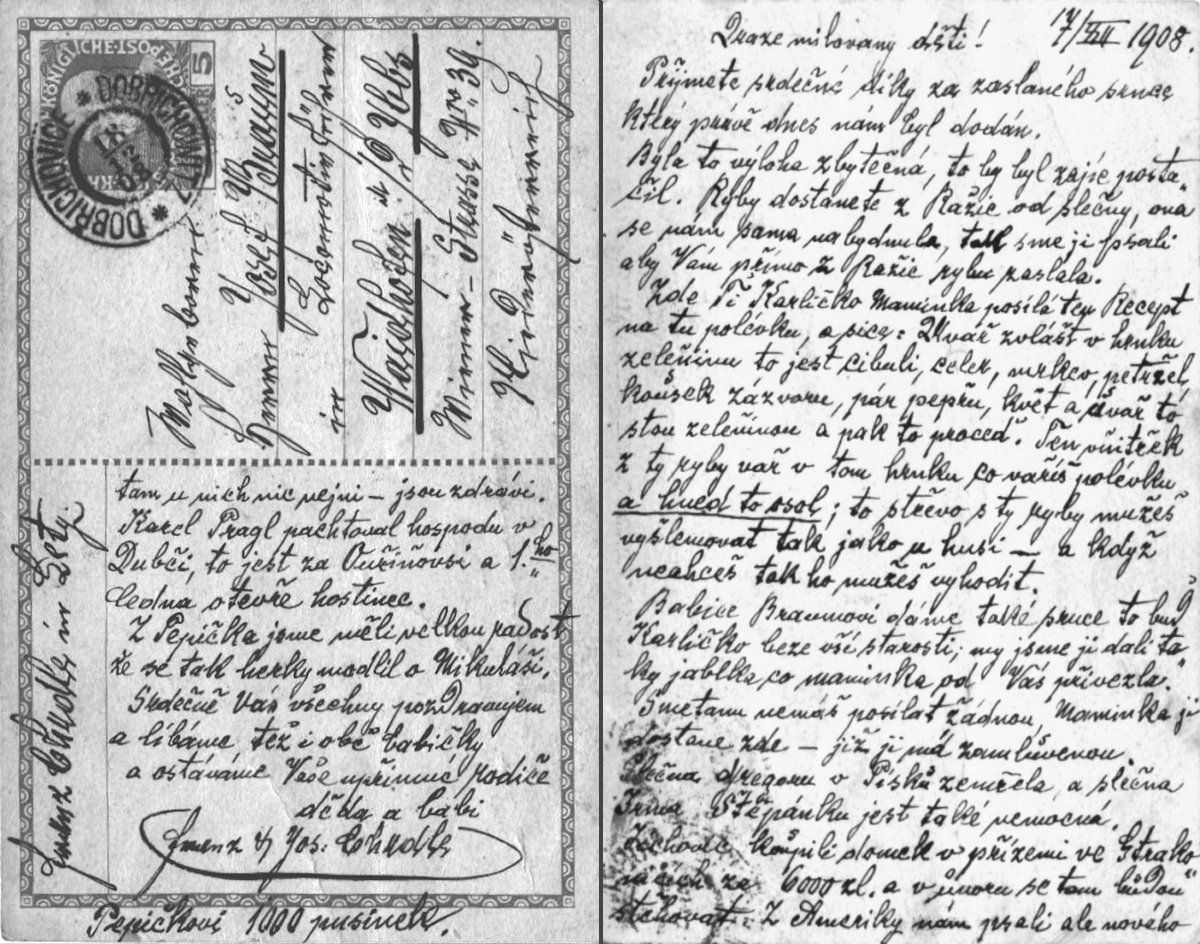 KÖNIGLICHE·POST
5
DOBŘICHOVICE * DOBRICHOWITZ *
Wohlgeboren
Herrn
Josef Braum
Locomotivführer
in
Waidhofen a/d Ybbs
Wiener-Strasse Nro 39.
Niederösterreich
Franz Chudls in Lety.
tam u nich nic nejni – jsou zdrávi.
Karel Pragl pachtoval hospodu v
Dubči, to jest za Ouřiňovsi a 1.ho
ledna otevře hostinec.
Z Pepíčka jsme měli velkou radost
že se tak hezky modlil o Mikuláši.
Srdečně Vás všechny pozdravujem
a líbáme též i obě babičky
a ostáváme Vaše upřímné rodiče
děda a babi
Franz & Jos. Chudls
Pepíčkovi 1000 pusinek.
Draze milovany děti!
17/XII 1908
Přijmete srdečné díky za zaslaného srnce
který právě dnes nám byl dodán.
Byla to výloha zbytečná, to by byl zajíc posta„
čil. Ryby dostanete z Ražic od slečny, ona
se nám sama nabydnula, tak sme ji psali
aby Vám přímo z Ražic rybu zaslala.
Zde Ti Karličko Maminka posílá ten Recept
na tu polévku, a sice: Uvař zvlášt v hrnku
zeleninu to jest cibuli, celer, mrkev, petržel,
kousek zázvoru, pár pepřu, květ a svař to
stou zeleninou a pak to proceď. Ten vnitřek
z ty ryby vař v tom hrnku co vaříš polévku
a hned to osol; to střevo s ty ryby mužeš
vyšlemovat tak jako u husi – a když
neahceš tak ho mužeš vyhodit.
Babice Braumovi dáme také srnce to buď
Karličko beze vší starosti, my jsme ji dali ta„
ky jablka co maminka od Vás přivezla.
Smetanu nemáš posílat žádnou, Maminka ji
dostane zde – již ji má zamluvenou.
Slečna v Písku zemřela, a slečna
Irma Štěpánku jest také nemocná.
koupili domek v přízemi ve Strako
nicích za 6000 zl. a v únoru se tam budou
stěhovat. Z Ameriky nám psali ale nového